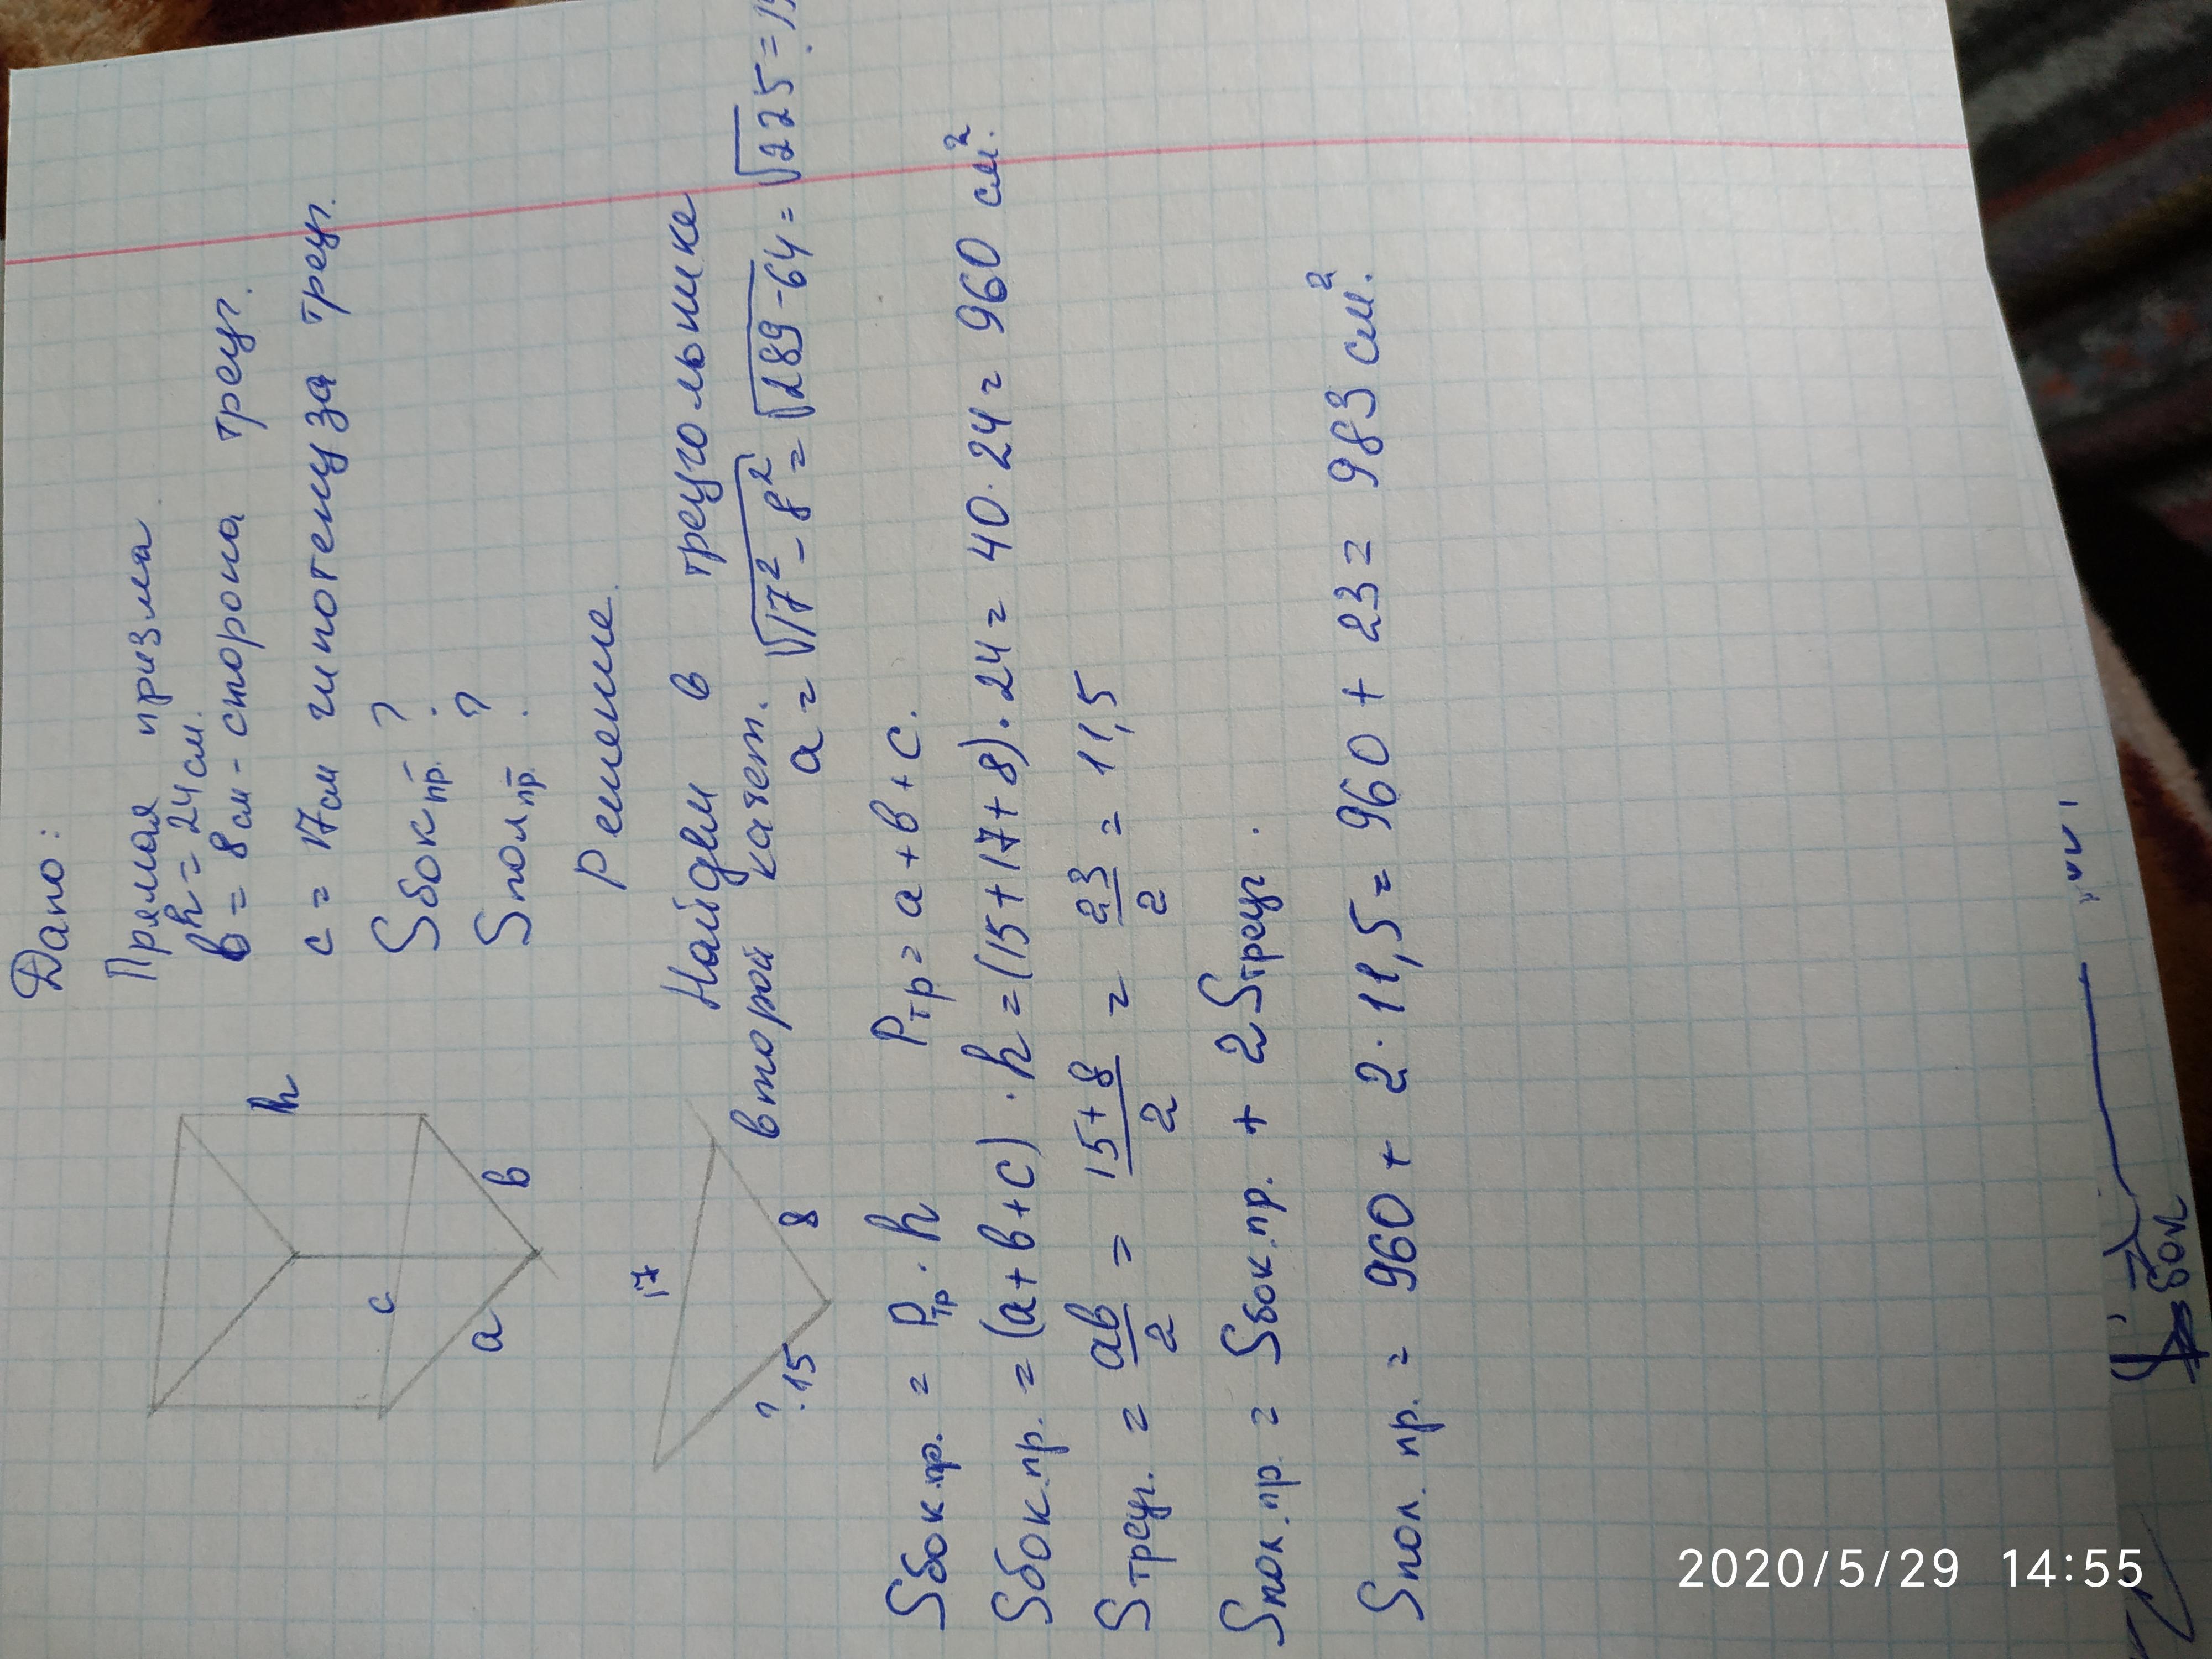 Дано:
Прямая призма
h = 24 см.
в = 8 см - сторона треуг.
с = 17 см гипотенуза треуг.
Sбок пр. ?
Sпол пр. ?
h
c
a
в
Решение.
Найдём в треугольнике
второй катет.
a = √17² - 8² = √289 - 64 = √225 =
17
? 15
8
Sбок.пр. = Pтр · h Pтр = a + в + c.
Sбок.пр. = (a + в + c) · h = (15 + 17 + 8) · 24 = 40 · 24 = 960 см².
Sтреуг. = aв/2 = 15 + 8/2 = 23/2 = 11,5
Sпол.пр. = Sбок.пр. + 2 Sтреуг.
Sпол.пр. = 960 + 2 · 11,5 = 960 + 23 = 983 см².
бок
2020/5/29 14:55